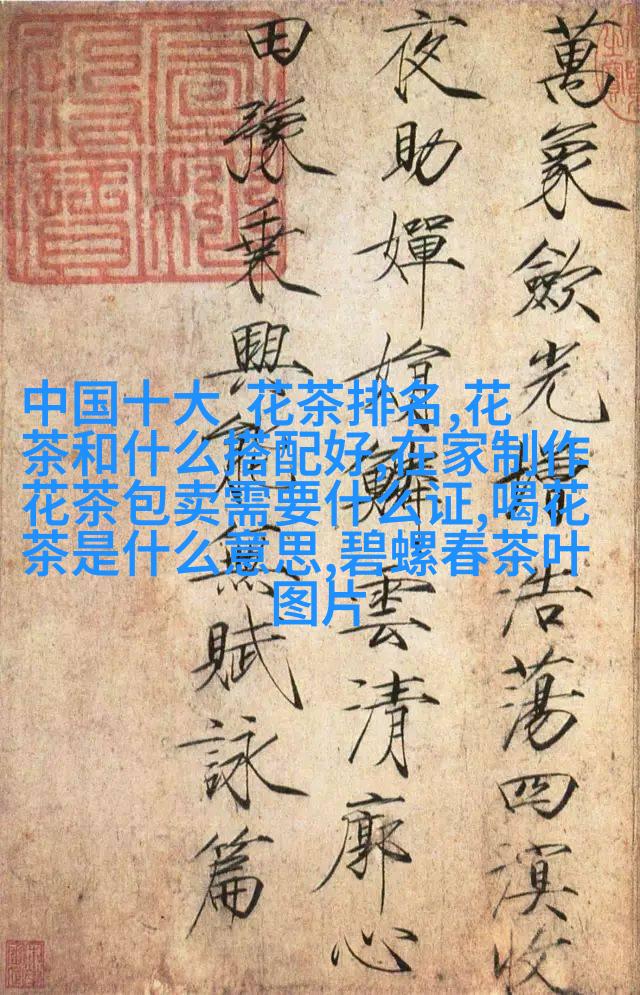 萬象歛光增浩蕩四溟收
夜助嬋娟鱗雲清廓心
田豫乘興能無賦詠篇
中国十大 花茶排名,花
茶和什么搭配好,在家制作
花茶包卖需要什么证,喝花
茶是什么意思,碧螺春茶叶
图片